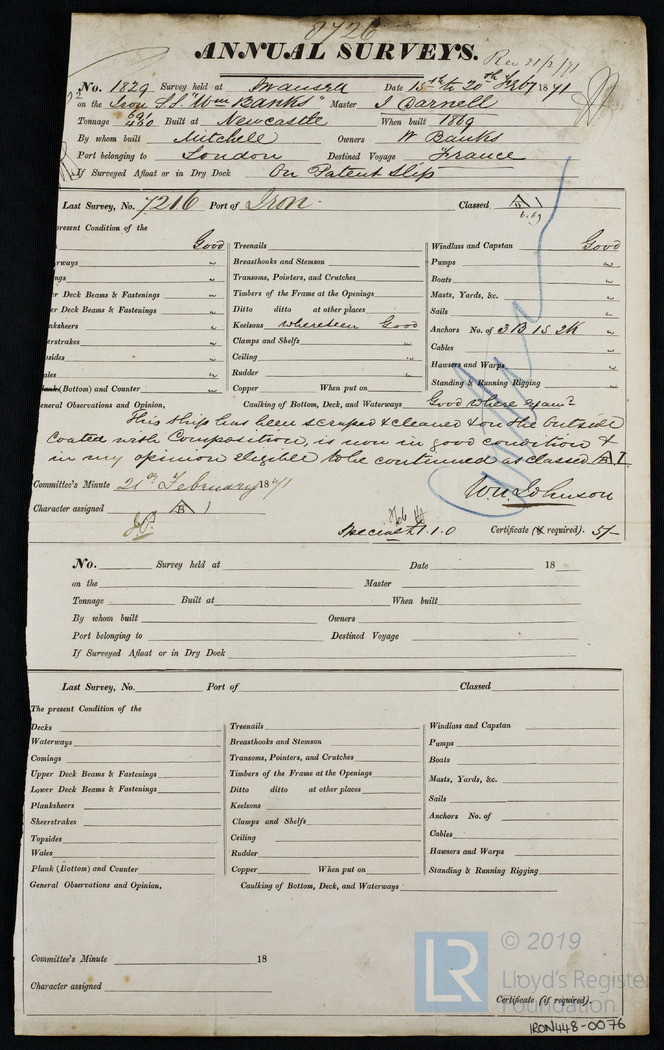 8726
ANNUAL SURVEYS. Rec 21/2/71
No. 1829 Survey held at Swansea Date 15th to 20th Feby 1871
on the Iron S.S. "Wm Banks" Master J Darnell
Tonnage 691 430 Built at Newcastle When built 1869
By whom built Mitchell Owners W Banks
Port belonging to London Destined Voyage France
If Surveyed Afloat or in Dry Dock On Patent Slip
Last Survey, No. 7216 Port of Iron Classed A 1
6.69
present Condition of the
Good Treenails Windlass and Capstan Good
rways " Breasthooks and Stemson Pumps "
ngs " Transoms, Pointers, and Crutches Boats "
er Deck Beams & Fastenings " Timbers of the Frame at the Openings Masts, Yards, &c. "
er Deck Beams & Fastenings " Ditto ditto at other places Sails "
nksheers " Keelsons where seen Good Anchors No. of 3 B 1 S 2 K "
erstrakes " Clamps and Shelfs " Cables "
psides " Ceiling " Hawsers and Warps "
ales " Rudder " Standing & Running Rigging "
Plank (Bottom) and Counter " Copper When put on
eneral Observations and Opinion, Caulking of Bottom, Deck, and Waterways Good where exam?
This ship has been scraped & cleaned & on the Outside
Coated with Composition, is now in good condition &
in my opinion eligible to be continued as classed A 1.
Committee's Minute 21st February 1871 Wm Johnson
Character assigned A 1
Special £1.1.0 Certificate (if required). 5/-
No. Survey held at Date 18
on the Master
Tonnage Built at When built
By whom built Owners
Port belonging to Destined Voyage
If Surveyed Afloat or in Dry Dock
Last Survey, No. Port of Classed
The present Condition of the
Decks Treenails Windlass and Capstan
Waterways Breasthooks and Stemson Pumps
Comings Transoms, Pointers, and Crutches Boats
Upper Deck Beams & Fastenings Timbers of the Frame at the Openings Masts, Yards, &c.
Lower Deck Beams & Fastenings Ditto ditto at other places Sails
Planksheers Keelsons Anchors No. of
Sheerstrakes Clamps and Shelfs Cables
Topsides Ceiling Hawsers and Warps
Wales Rudder Standing & Running Rigging
Plank (Bottom) and Counter Copper When put on
General Observations and Opinion, Caulking of Bottom, Deck, and Waterways
Committee's Minute 18
Character assigned
Certificate (if required).
LR © 2019
Lloyd's Register
Foundation
IRON448-0076